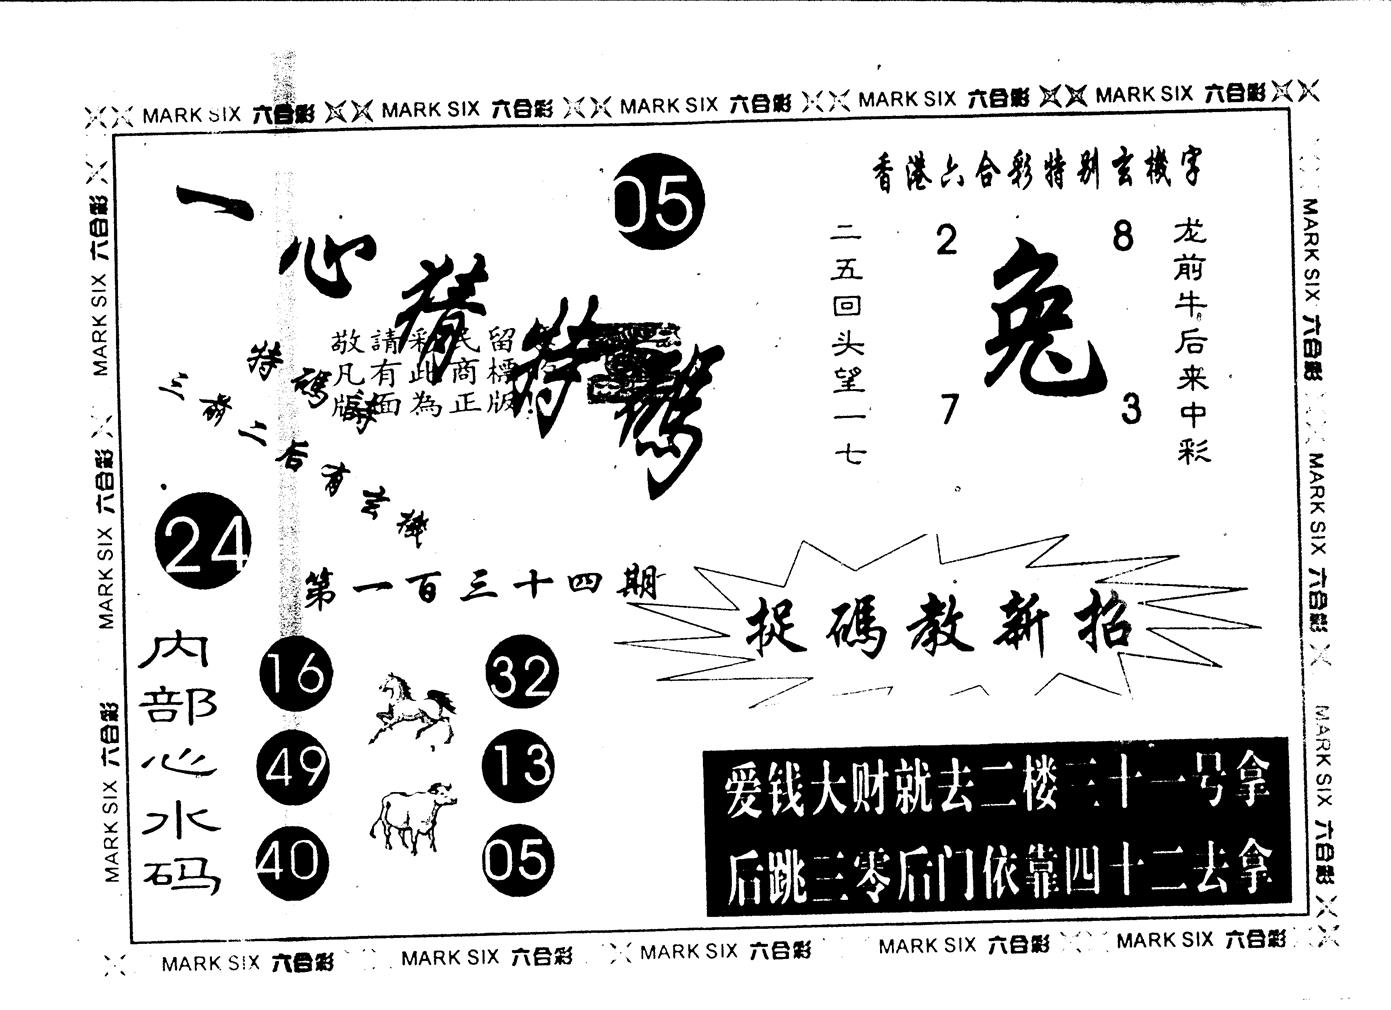 MARK SIX 六合彩 MARK SIX 六合彩 MARK SIX 六合彩 MARK SIX 六合彩 MARK SIX 六合彩
MARK SIX 六合彩 MARK SIX 六合彩 MARK SIX 六合彩
一心猜特碼
05
敬請彩民留
凡有此商標
版面為正版!
特碼詩
三前二后有玄機
24
第一百三十四期
香港六合彩特别玄機字
二五回头望一七
2 8
兔
7 3
龙前牛后来中彩
捉碼教新招
内部心水码
16 32
49 13
40 05
爱钱大财就去二楼三十一号拿
后跳三零后门依靠四十二去拿
MARK SIX 六合彩 MARK SIX 六合彩 MARK SIX 六合彩
MARK SIX 六合彩 MARK SIX 六合彩 MARK SIX 六合彩 MARK SIX 六合彩 MARK SIX 六合彩